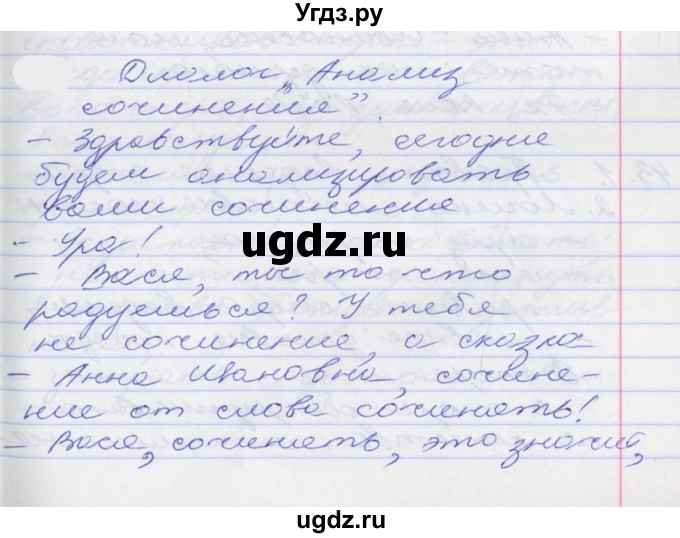 Угдз.ру
Диалог „Анализ
сочинения”.
– Здравствуйте, сегодня
будем анализировать
ваши сочинения
– Ура!
ugdz.ru
– Вася, ты то что
радуешься? У тебя
не сочинение, а сказка
– Анна Ивановна, сочине-
ние от слова сочинять!
– Вася, сочинять, это значит,
ugdz.ru
ugdz.ru